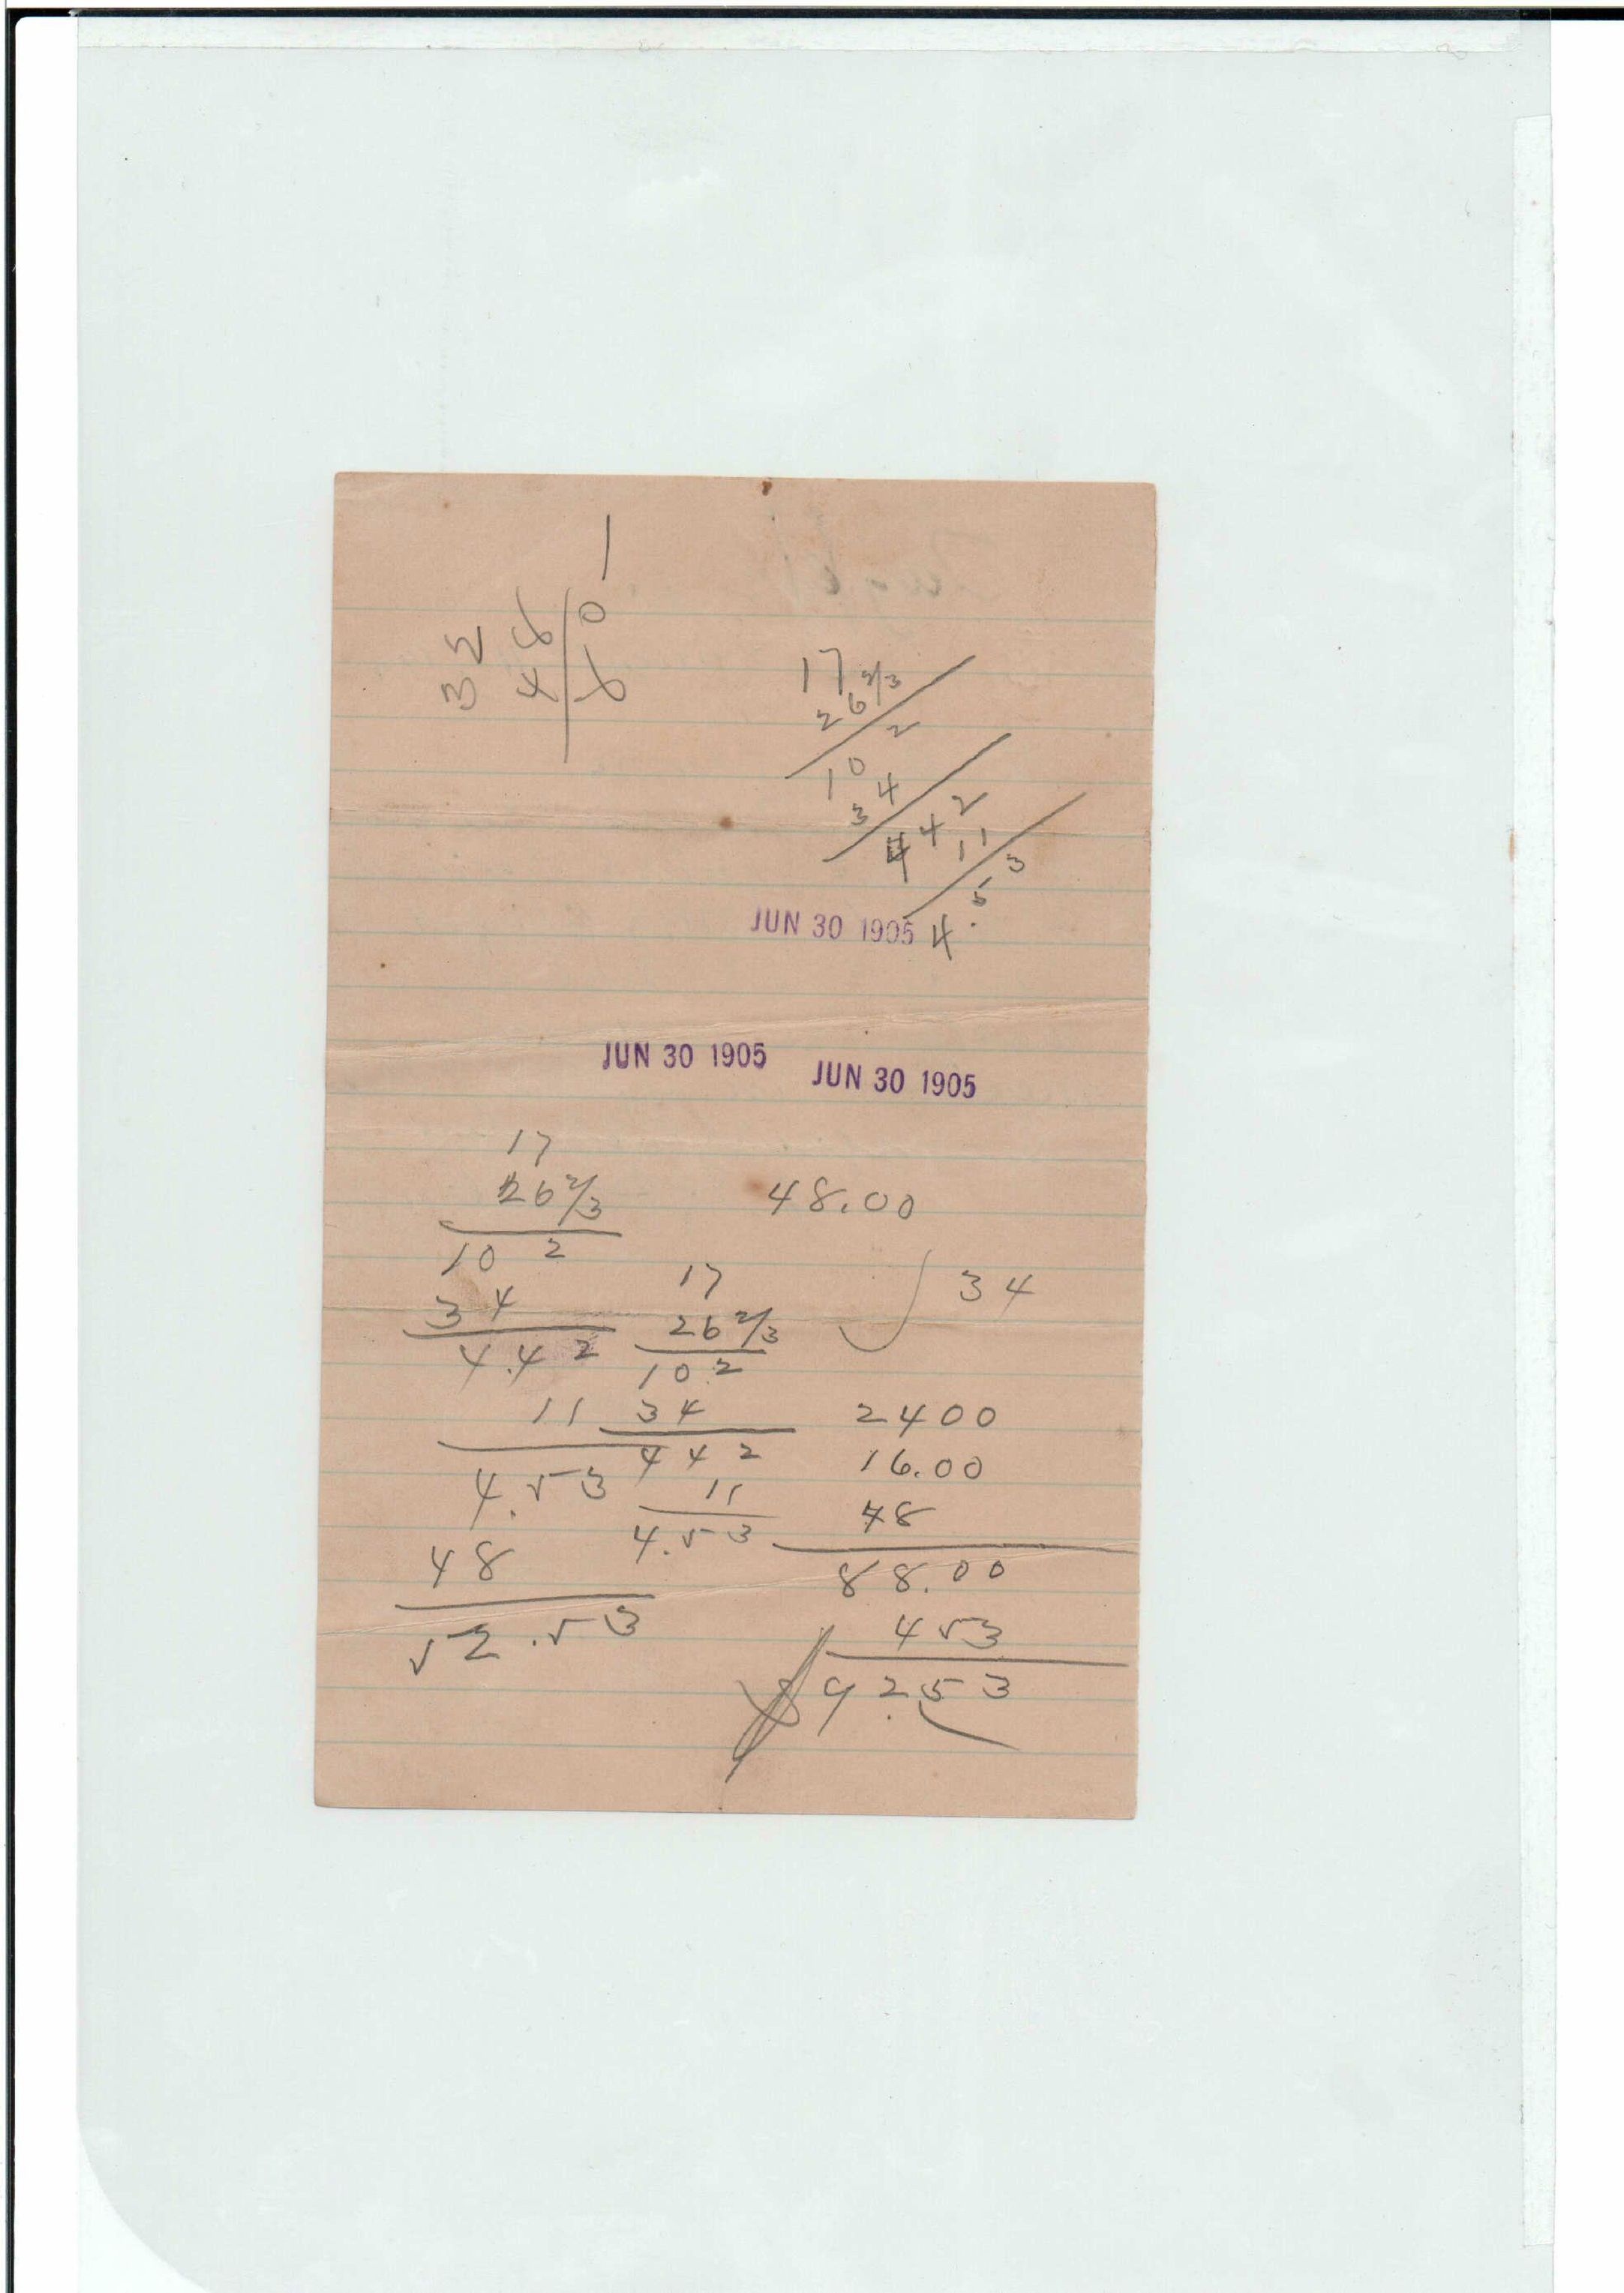 32
48
601
17
26 2/3
102
34
442
11
4.53
JUN 30 1905
JUN 30 1905 JUN 30 1905
17
26 2/3
102
34
4.42
11
4.53
48
52.53
17
26 2/3
102
34
442
11
4.53
48.00
34
2400
16.00
48
88.00
453
$92.53